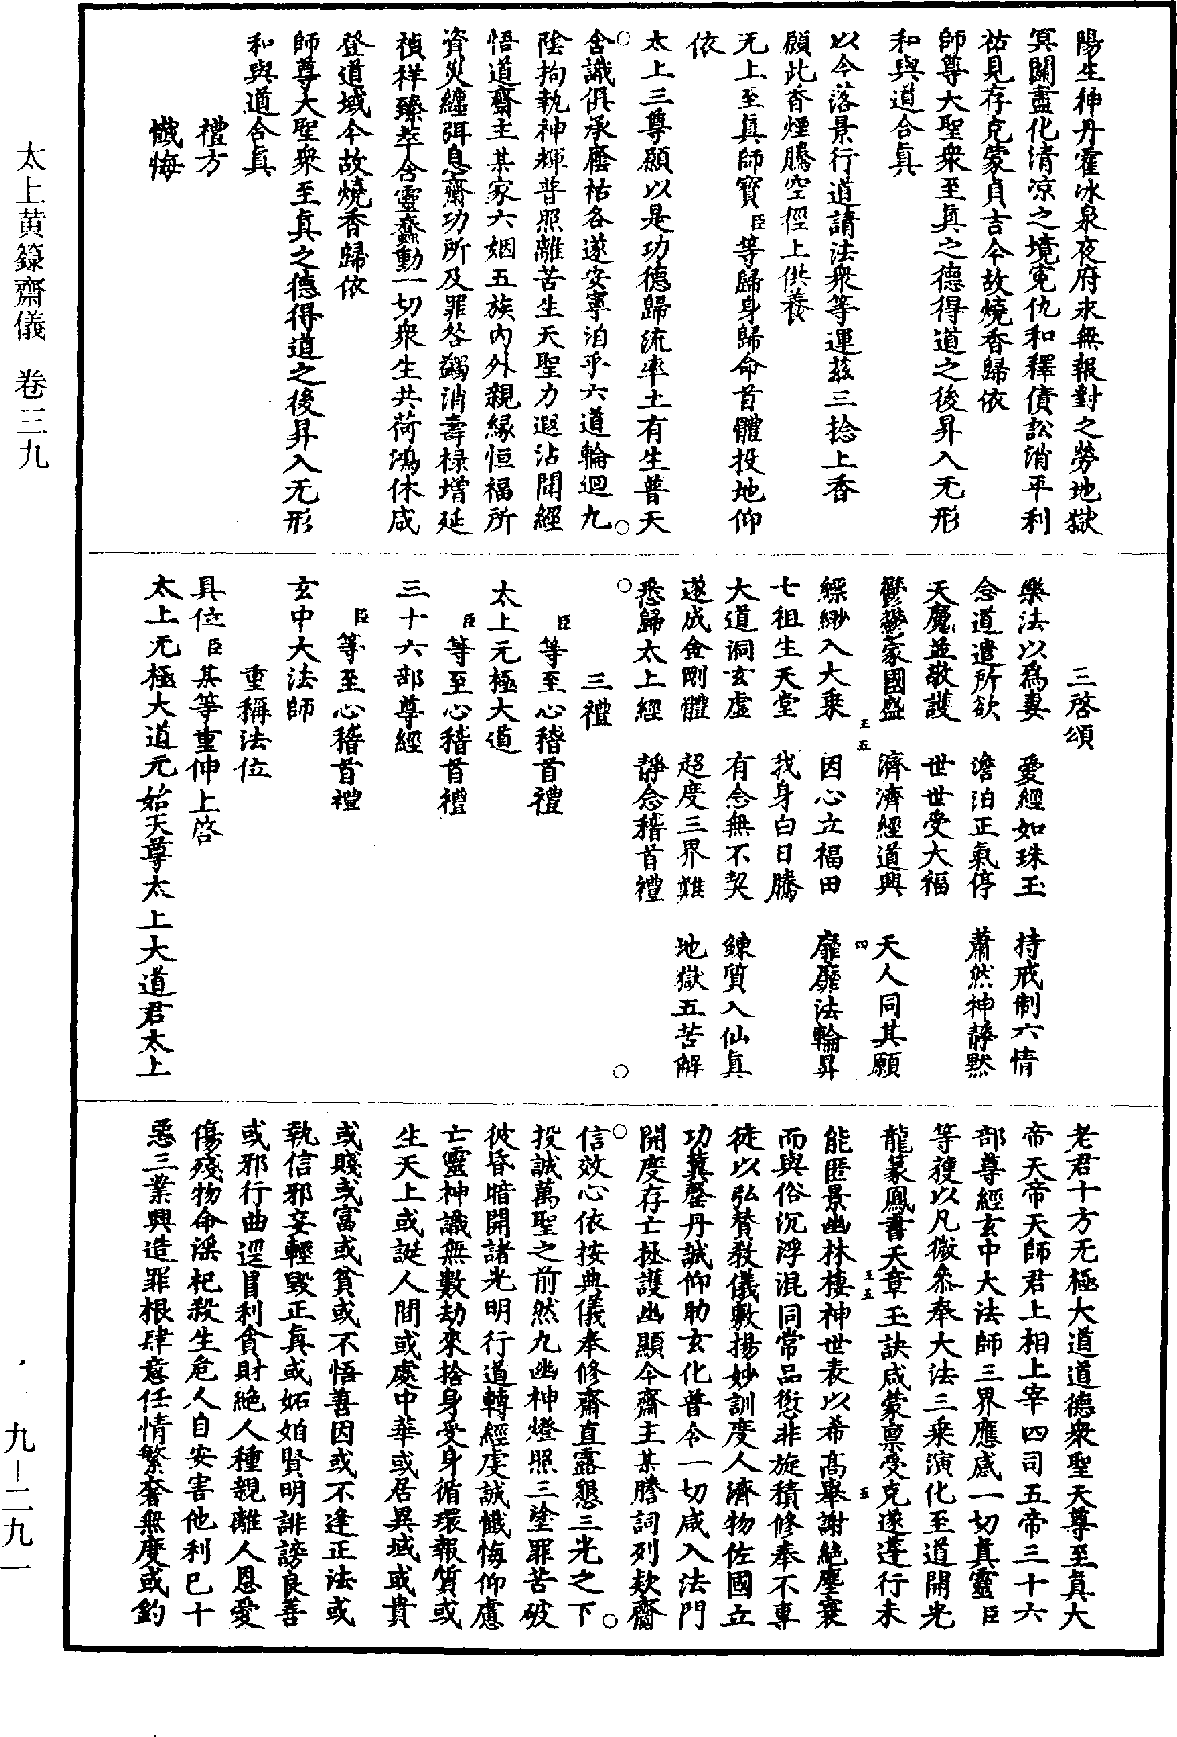 陽生神丹霍冰泉夜府永無報對之勞地獄
冥關盡化清凉之境寃仇和釋債訟消平利
祐見存克蒙貞吉今故燒香歸依
師尊大聖衆至真之德得道之後昇入无形
和與道合真
以今落景行道請法衆等運茲三捻上香
願此香煙騰空徑上供養
无上至真師寳臣等歸身歸命首體投地仰
依
太上三尊願以是功德歸流率土有生普天
含識俱承廕祐各遂安寧洎乎六道輪迴九
陰拘執神輝普照離苦生天聖力遐沾開經
悟道齋主某家六姻五族内外親緣恒福所
資災纏弭息齋功所及罪咎蠲消壽禄增延
禎祥臻萃含靈蠢動一切衆生共荷鴻休咸
登道域今故燒香歸依
師尊大聖衆至真之德得道之後昇入无形
和與道合真
禮方
懺悔
三啓頌
樂法以爲妻 愛經如珠玉 持戒制六情
念道遣所欲 澹泊正氣停 蕭然神静黙
天魔並敬護 世世受大福
鬱鬱家國盛 濟濟經道興 天人同其願
王五 四
縹緲入大乘 因心立福田 靡靡法輪昇
七祖生天堂 我身白日騰
大道洞玄虚 有念無不契 鍊質入仙真
遂成金剛體 超度三界難 地獄五苦解
悉歸太上經 靜念稽首禮
三禮
臣等至心稽首禮
太上无極大道
臣等至心稽首禮
三十六部尊經
臣等至心稽首禮
玄中大法師
重稱法位
具位臣某等重伸上啓
太上无極大道元始天尊太上大道君太上
老君十方无極大道道德衆聖天尊至真大
帝天帝天師君上相上宰四司五帝三十六
部尊經玄中大法師三界應感一切真靈臣
等獲以凡微叅奉大法三乘演化至道開光
龍篆鳳書天章玉訣咸蒙禀受克遂遵行未
王五 五
能匿景幽林棲神世表以希髙舉謝絶塵衰
而與俗沉浮混同常品愆非旋積修奉不專
徒以弘賛教儀敷揚妙訓度人濟物佐國立
功冀罄丹誠仰助玄化普令一切咸入法門
開度存亡拯護幽顯今齋主某謄詞列欵齎
信效心依按典儀奉修齋直露懇三光之下
投誠萬聖之前然九幽神燈照三塗罪苦破
彼昏暗開諸光明行道轉經虔誠懺悔仰慮
亡靈神識無數劫來捨身受身循環報質或
生天上或誕人間或處中華或居異域或貴
或賤或富或貧或不悟善因或不逢正法或
執信邪妄輕毁正真或妬妒賢明誹謗良善
或邪行曲逕冒利貪財絶人種親離人恩愛
傷殘物命滛祀殺生危人自安害他利已十
惡三業興造罪根肆意任情繁奢無度或釣
太上黄籙齋儀 卷三九
九—二九一